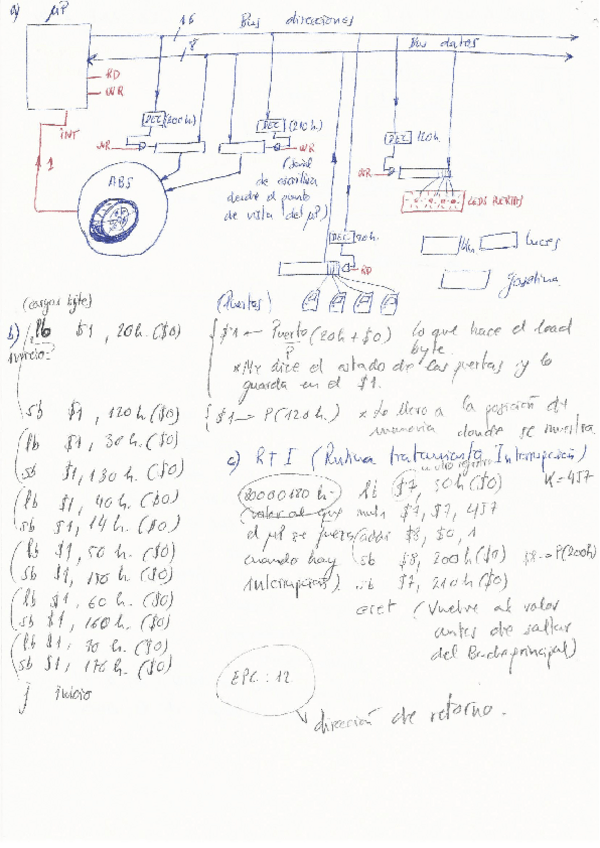 a) μP
16
Bus direcciones
8
Bus datos
RD
WR
INT
1
DEC (200h)
DEC (210h)
DEC 120h
WR
WR
WR
ABS
(señal
de escritura
desde el punto
de vista del μP)
LEDS PUERTAS
DEC 20h.
RD
luces
gasolina
(cargar byte)
(Puertas)
b) lb $1, 20h. ($0)
inicio:
$1 ← Puerto (20h + $0) lo que hace el load
byte.
* Me dice el estado de las puertas y lo
guarda en el $1.
sb $1, 120h. ($0)
$1 → P(120h.) * Lo llevo a la posición de
memoria donde se muestra
lb $1, 30h. ($0)
sb $1, 130h. ($0)
lb $1, 40h. ($0)
sb $1, 14h. ($0)
lb $1, 50h. ($0)
sb $1, 150h. ($0)
lb $1, 60h. ($0)
sb $1, 160h. ($0)
lb $1, 70h. ($0)
sb $1, 170h. ($0)
j inicio
c) RTI (Rutina tratamiento Interrupción)
20000180h-
(valor al que
el μP se
cuando hay
Interrupción)
$7, 50h ($0) K=457
$7, $7, 457
addi $8, $0, 1
sb $8, 200h ($0) $8 → P(200h)
sb $7, 210h ($0)
eret (Vuelve al valor
antes de saltar
del Bucle principal)
EPC: 12
dirección de retorno.